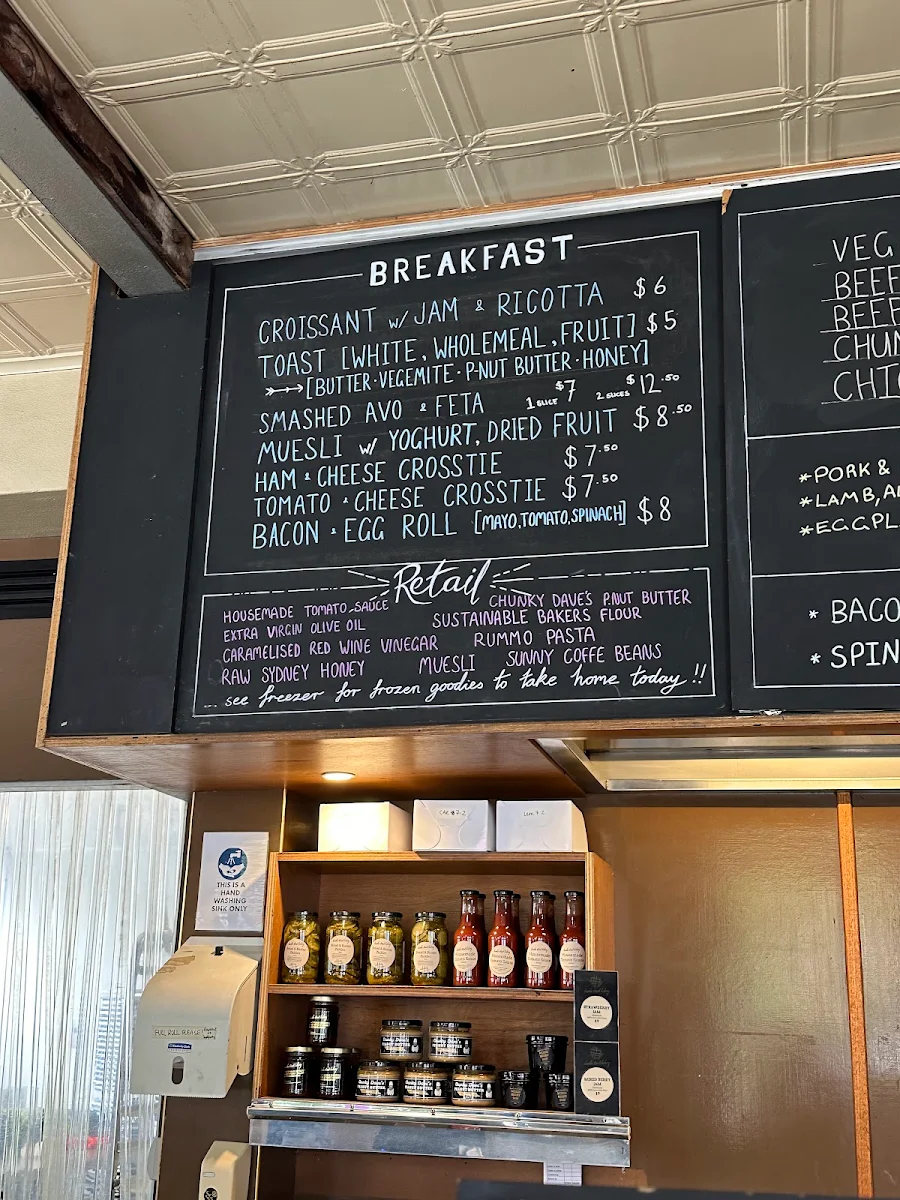 BREAKFAST
CROISSANT w/ JAM & RICOTTA $6
TOAST [WHITE, WHOLEMEAL, FRUIT] $5
[BUTTER · VEGEMITE · P-NUT BUTTER · HONEY]
SMASHED AVO & FETA 1 SLICE $7 2 SLICES $12.50
MUESLI w/ YOGHURT, DRIED FRUIT $8.50
HAM & CHEESE CROSSTIE $7.50
TOMATO & CHEESE CROSSTIE $7.50
BACON & EGG ROLL [MAYO, TOMATO, SPINACH] $8
Retail
HOUSEMADE TOMATO SAUCE CHUNKY DAVE'S P.NUT BUTTER
EXTRA VIRGIN OLIVE OIL SUSTAINABLE BAKERS FLOUR
CARAMELISED RED WINE VINEGAR RUMMO PASTA
RAW SYDNEY HONEY MUESLI SUNNY COFFE BEANS
... see freezer for frozen goodies to take home today !!
VEG
BEEF
BEEF
CHUN
CHIC
*PORK &
*LAMB, A
*EGGPL
* BACO
* SPIN
THIS IS A
HAND
WASHING
SINK ONLY
FULL ROLL PLEASE